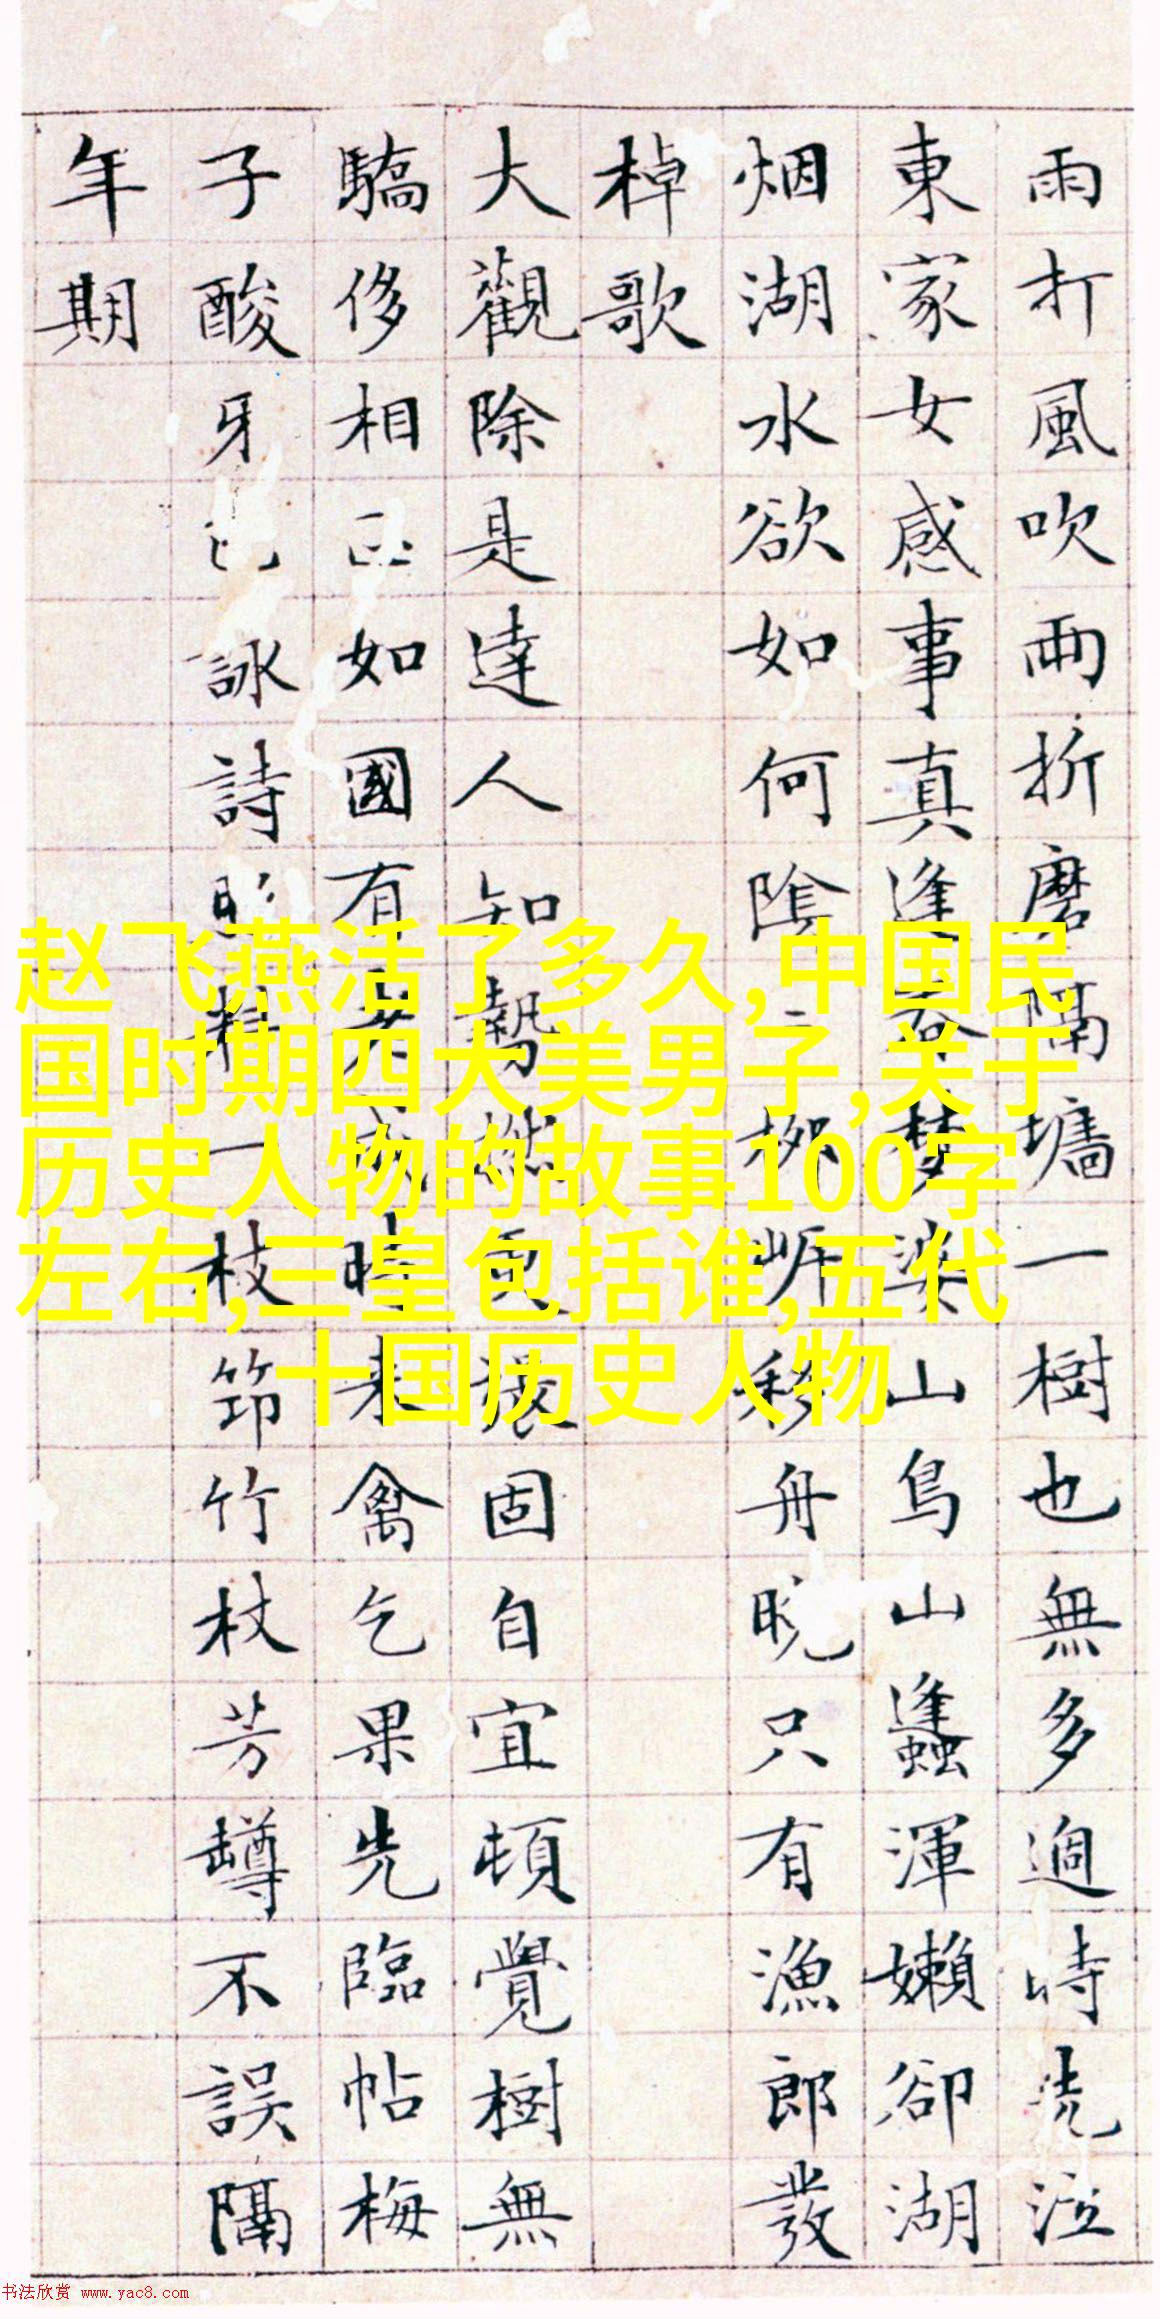 雨打風吹雨折磨隔墻一樹也無多過時洗泣
東家女感事真逢春夢婆山鳥山蠭渾嬾卻湖
烟湖水欲如何陰二柳岍移舟晚只有漁郎發
棹歌
大觀除是達人知勢燃更衰固自宜頓覺樹無
驕侈相如國有時來禽乞果先臨帖梅
子酸牙詠詩一枝筇竹杖芳罇不誤隔
年期
赵飞燕活了多久,中国民
国时期四大美男子,关于
历史人物的故事100字
左右,三皇包括谁,五代
十国历史人物
书法欣赏 www.yac8.com